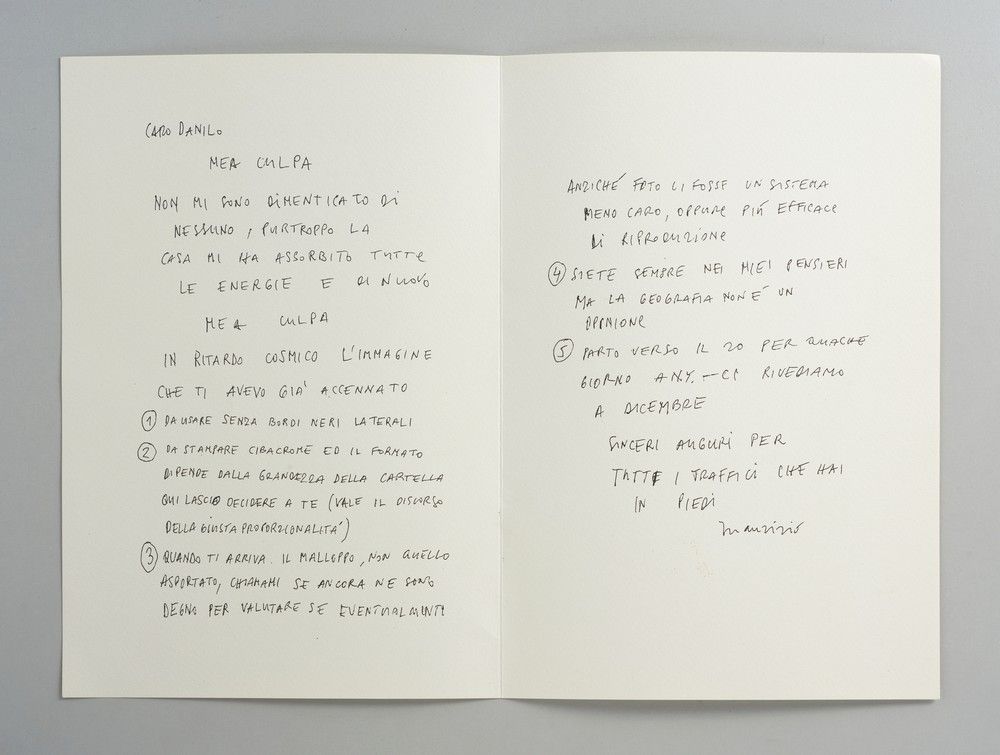 CARO DANILO
MEA CULPA
NON MI SONO DIMENTICATO DI
NESSUNO, PURTROPPO LA
CASA MI HA ASSORBITO TUTTE
LE ENERGIE E DI NUOVO
MEA CULPA
IN RITARDO COSMICO L'IMMAGINE
CHE TI AVEVO GIA' ACCENNATO
① DA USARE SENZA BORDI NERI LATERALI
② DA STAMPARE CIBACROME ED IL FORMATO
DIPENDE DALLA GRANDEZZA DELLA CARTELLA
QUI LASCIO DECIDERE A TE (VALE IL DISCORSO
DELLA GIUSTA PROPORZIONALITA')
③ QUANDO TI ARRIVA IL MALLOPPO, NON QUELLO
ASPORTATO, CHIAMAMI SE ANCORA NE SONO
DEGNO PER VALUTARE SE EVENTUALMENTE
ANZICHÉ FOTO CI FOSSE UN SISTEMA
MENO CARO, OPPURE PIÚ EFFICACE
DI RIPRODUZIONE
④ SIETE SEMPRE NEI MIEI PENSIERI
MA LA GEOGRAFIA NON E' UN
OPINIONE
⑤ PARTO VERSO IL 20 PER QUALCHE
GIORNO A N.Y. — CI RIVEDIAMO
A DICEMBRE
SINCERI AUGURI PER
TUTTE I TRAFFICI CHE HAI
IN PIEDI
Maurizio